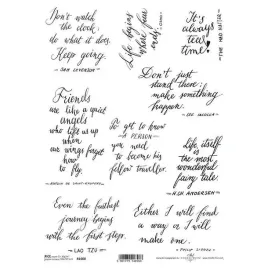 Don't watch
the clock;
do what it does.
Keep going.
- SAM LEVENSON -
Life begins
where fear
ends.
It's
always
tea
time!
- THE MAD HATTER -
Don't just
stand there;
make something
happen.
- LEE IACOCCA -
Friends
are like a quiet
angels
who lift us up
when
our wings forget
how
to fly
To get to know
a PERSON
you need
to become his
fellow traveller.
Life itself
is the most
wonderful
fairy tale.
- H.CH. ANDERSEN -
Even the farthest
journey begins
with the first step.
- LAO TZU -
Either I will find
a way or
I will make
one.
- PHILIP SIDNEY -